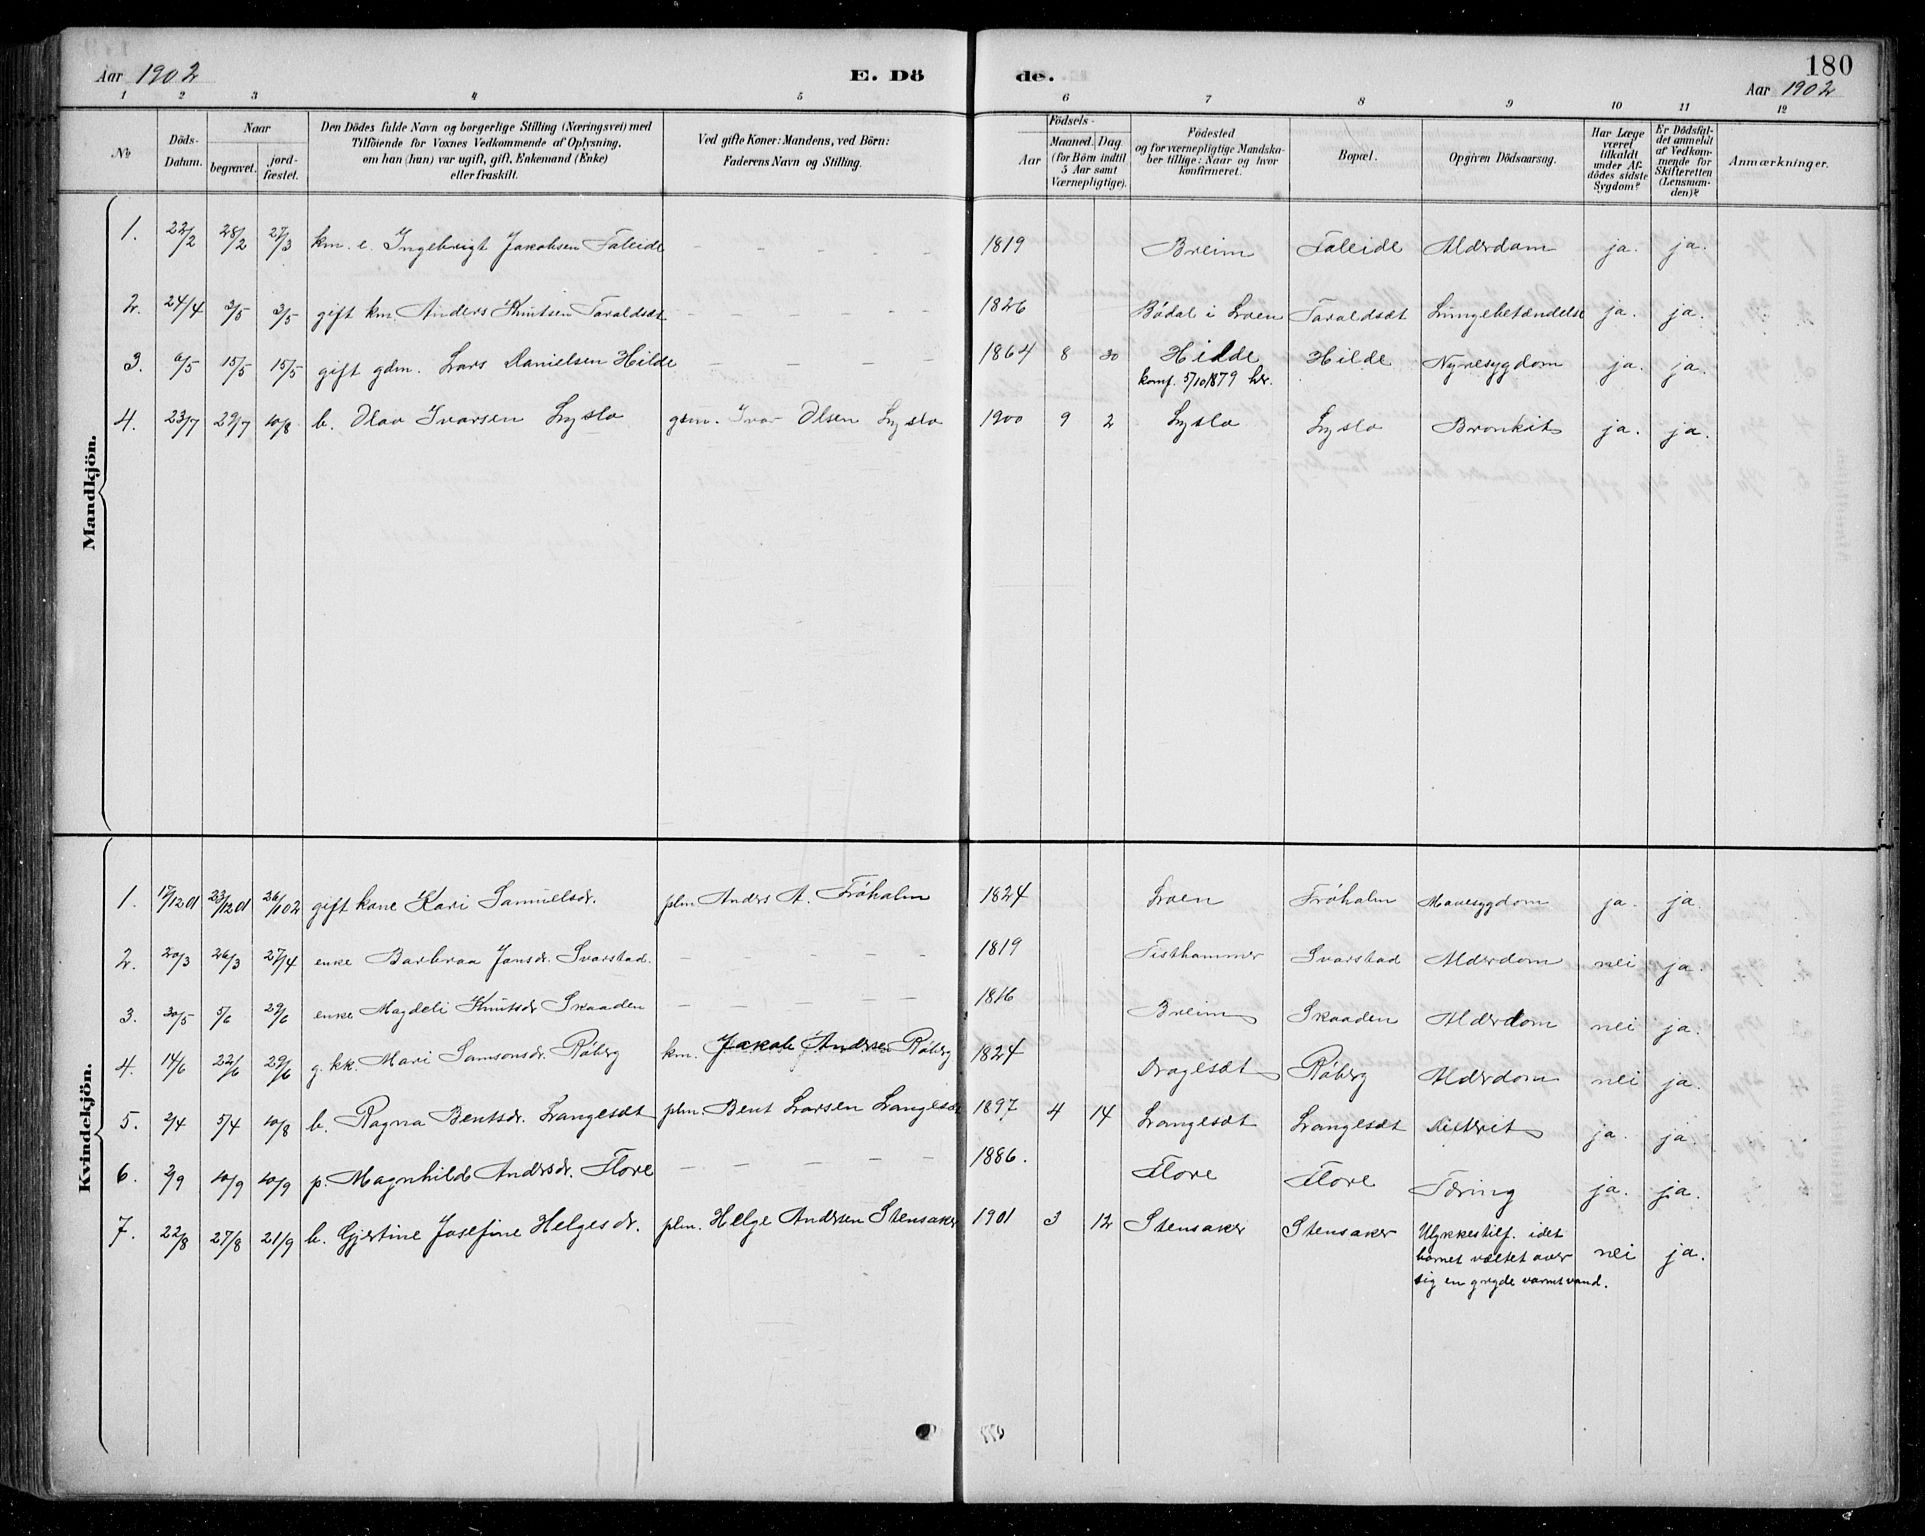 Aar 1902
E. Dö
de.
180
Aar 1902
1 2 3 4 5 6 7 8 9 10 11 12
No
Döds-Datum.
Naar
begravet.
jord-fæstet.
Den Dödes fulde Navn og borgerlige Stilling (Næringsvei) med
Tilföiende for Voxnes Vedkommende af Oplysning,
om han (hun) var ugift, gift, Enkemand (Enke)
eller fraskilt.
Ved gifte Koner: Mandens, ved Börn:
Faderens Navn og Stilling.
Födsels-
Aar
Maaned. Dag
(for Börn indtil
5 Aar samt
Værnepligtige).
Födested
og for værnepligtige Mandska-
ber tillige: Naar og hvor
konfirmeret.
Bopæl.
Opgiven Dödsaarsag.
Har Læge
været
tilkaldt
under Af-
dödes sidste
Sygdom?
Er Dödsfal-
det anmeldt
af Vedkom-
mende for
Skifteretten
(Lensman-
den)?
Anmærkninger.
Mandkjön.
1. 22/2 28/2 27/3 km. e. Ingebrigt Jakobsen Faleide 1819 Breim Faleide Alderdom ja. ja.
2. 24/4 3/5 3/5 gift km. Anders Knutsen Taraldsæt 1826 Bødal i Loen Taraldsæt Lungebetændelse ja. ja.
3. 6/5 15/5 15/5 gift gdm. Lars Danielsen Hilde 1864 8 30 Hilde Hilde Nyresygdom ja. ja.
konf. 5/10 1879 hr.
4. 23/7 29/7 10/8 b. Olav Ivarsen Lyslo gdm. Ivar Olsen Lyslo 1900 9 2 Lyslo Lyslo Bronkit ja. ja.
Kvindekjön.
1. 17/12 01 23/12 01 26/1 02 gift kone Kari Samuelsdr. plm. Anders A. Frøholm 1824 Loen Frøholm Mavesygdom ja. ja.
2. 20/3 26/3 27/4 enke Barbraa Jonsdr. Svarstad. 1819 Tisthammer Svarstad Alderdom nei ja.
3. 30/5 5/6 29/6 enke Magdeli Knutsdr Skaaden 1816 Breim Skaaden Alderdom nei ja.
4. 14/6 22/6 29/6 g. kk. Mari Samsonsdr. Røberg km. Jakob Andersen Røberg 1824 Dragesæt Røberg Alderdom nei ja.
5. 2/4 5/4 10/8 b. Ragna Bentsdr. Langesæt plm. Bent Larsen Langesæt 1897 4 14 Langesæt Langesæt ja. ja.
6. 2/9 10/9 10/9 p. Magnhild Andersdr. Flore 1886. Flore Flore Tæring ja. ja.
7. 22/8 27/8 21/9 b. Gjertine Josefine Helgesdr. plm. Helge Andersen Stensaker 1901 3 12 Stensaker Stensaker Ulykkestilf. idet nei ja.
barnet væltet over
sig en gryde varmt vand.